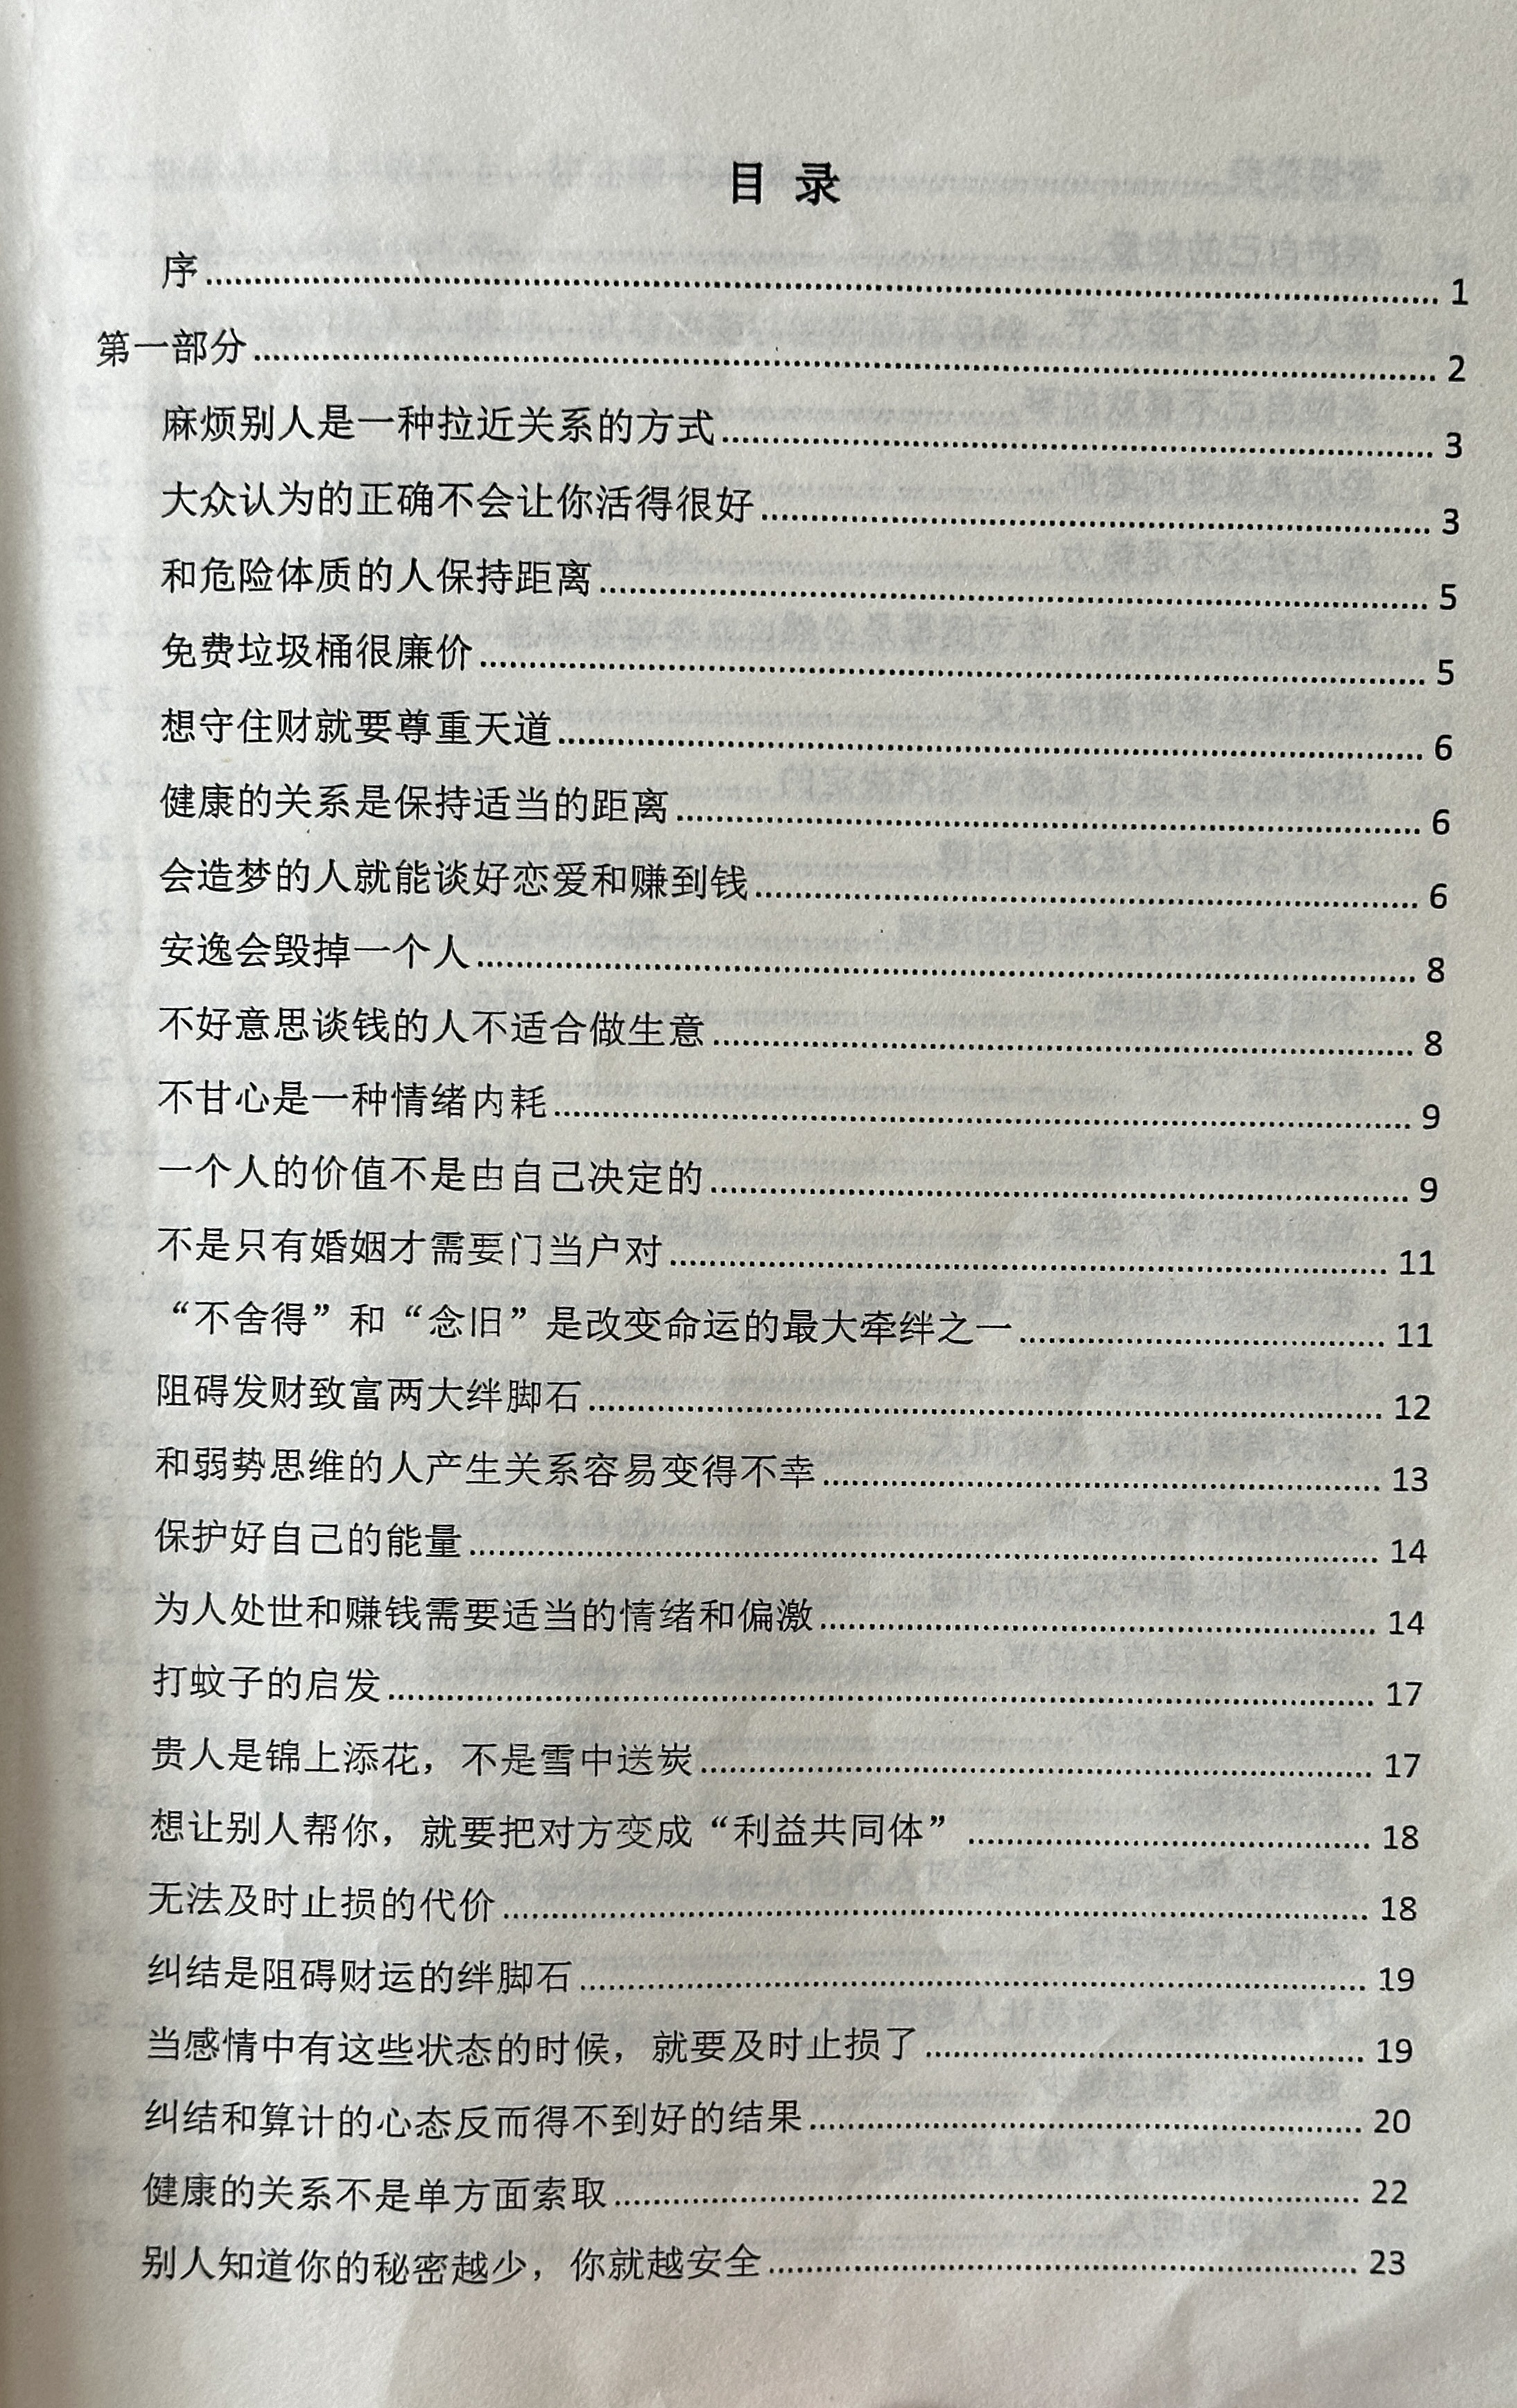 目 录
序 1
第一部分 2
麻烦别人是一种拉近关系的方式 3
大众认为的正确不会让你活得很好 3
和危险体质的人保持距离 5
免费垃圾桶很廉价 5
想守住财就要尊重天道 6
健康的关系是保持适当的距离 6
会造梦的人就能谈好恋爱和赚到钱 6
安逸会毁掉一个人 8
不好意思谈钱的人不适合做生意 8
不甘心是一种情绪内耗 9
一个人的价值不是由自己决定的 9
不是只有婚姻才需要门当户对 11
“不舍得”和“念旧”是改变命运的最大牵绊之一 11
阻碍发财致富两大绊脚石 12
和弱势思维的人产生关系容易变得不幸 13
保护好自己的能量 14
为人处世和赚钱需要适当的情绪和偏激 14
打蚊子的启发 17
贵人是锦上添花，不是雪中送炭 17
想让别人帮你，就要把对方变成“利益共同体” 18
无法及时止损的代价 18
纠结是阻碍财运的绊脚石 19
当感情中有这些状态的时候，就要及时止损了 19
纠结和算计的心态反而得不到好的结果 20
健康的关系不是单方面索取 22
别人知道你的秘密越少，你就越安全 23